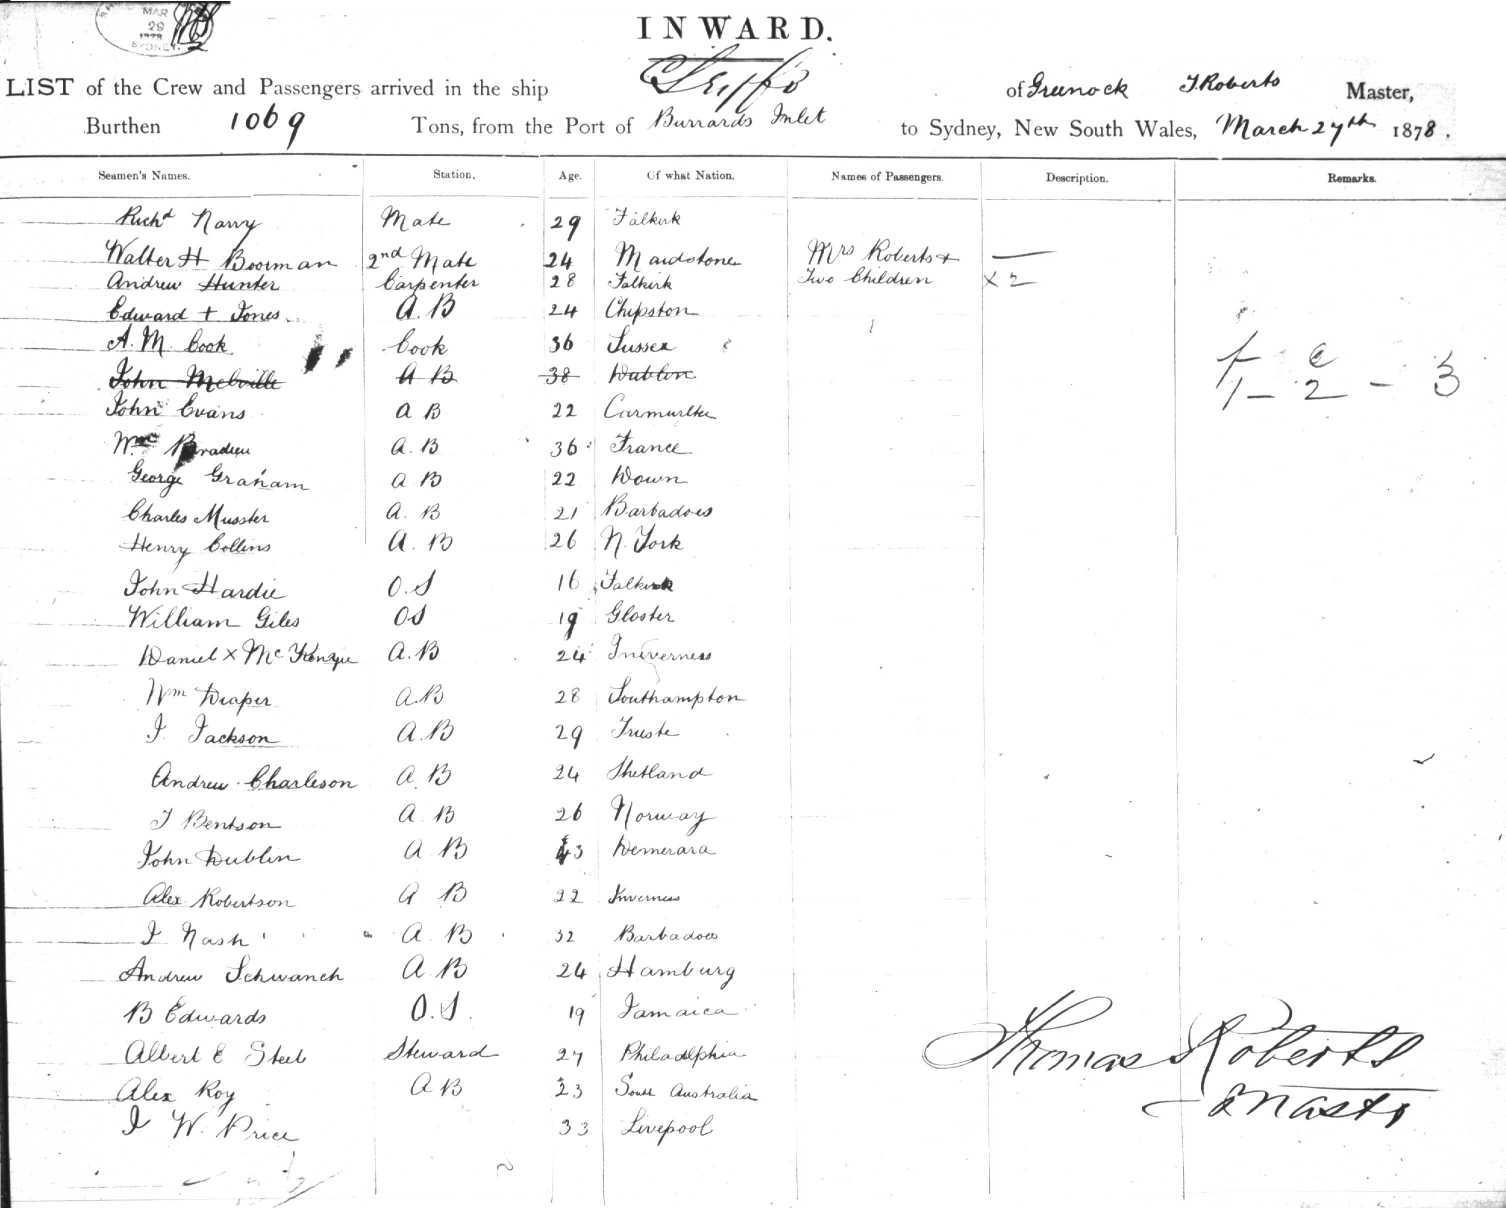 MAR
29
1878
SYDNEY
INWARD.
LIST of the Crew and Passengers arrived in the ship of Greenock T Roberts Master,
Burthen 1069 Tons, from the Port of Burrards Inlet to Sydney, New South Wales, March 27th 1878.
Seamen's Names. Station. Age. Of what Nation. Names of Passengers. Description. Remarks.
Richd Mate 29 Falkirk
Walter H Boorman 2nd Mate 24 Maidstone Mrs Roberts +
Andrew Hunter Carpenter 28 Falkirk Two Children x 2
Edward + Jones A.B 24 Chipston
A. M. Cook Cook 36 Sussex
John Melville A B 38 Dublin
John Evans A B 22
Wm A.B 36 France
George Graham A B 22 Down
Charles Musster A. B 21 Barbadoes
Henry Collins A. B 26 N. York
John Hardie O.S 16 Falkirk
William Giles OS 19 Gloster
Daniel x McKenzie A.B 24 Inverness
Wm Draper A.B 28 Southampton
J. Jackson A.B 29 Trieste
Andrew Charleson A. B 24 Shetland
J Bentson A B 26 Norway
John Dublin A B 43 Demerara
Alex Robertson A B 22 Inverness
J Nash A. B 32 Barbadoes
Andrew Schwanch A B 24 Hamburg
B Edwards O.S. 19 Jamaica
Albert E Steel Steward 27 Philadelphia
Alex Roy A B 23 South Australia
J W. Price 33 Liverpool
f c
1 - 2 - 3
Thomas Roberts
Master